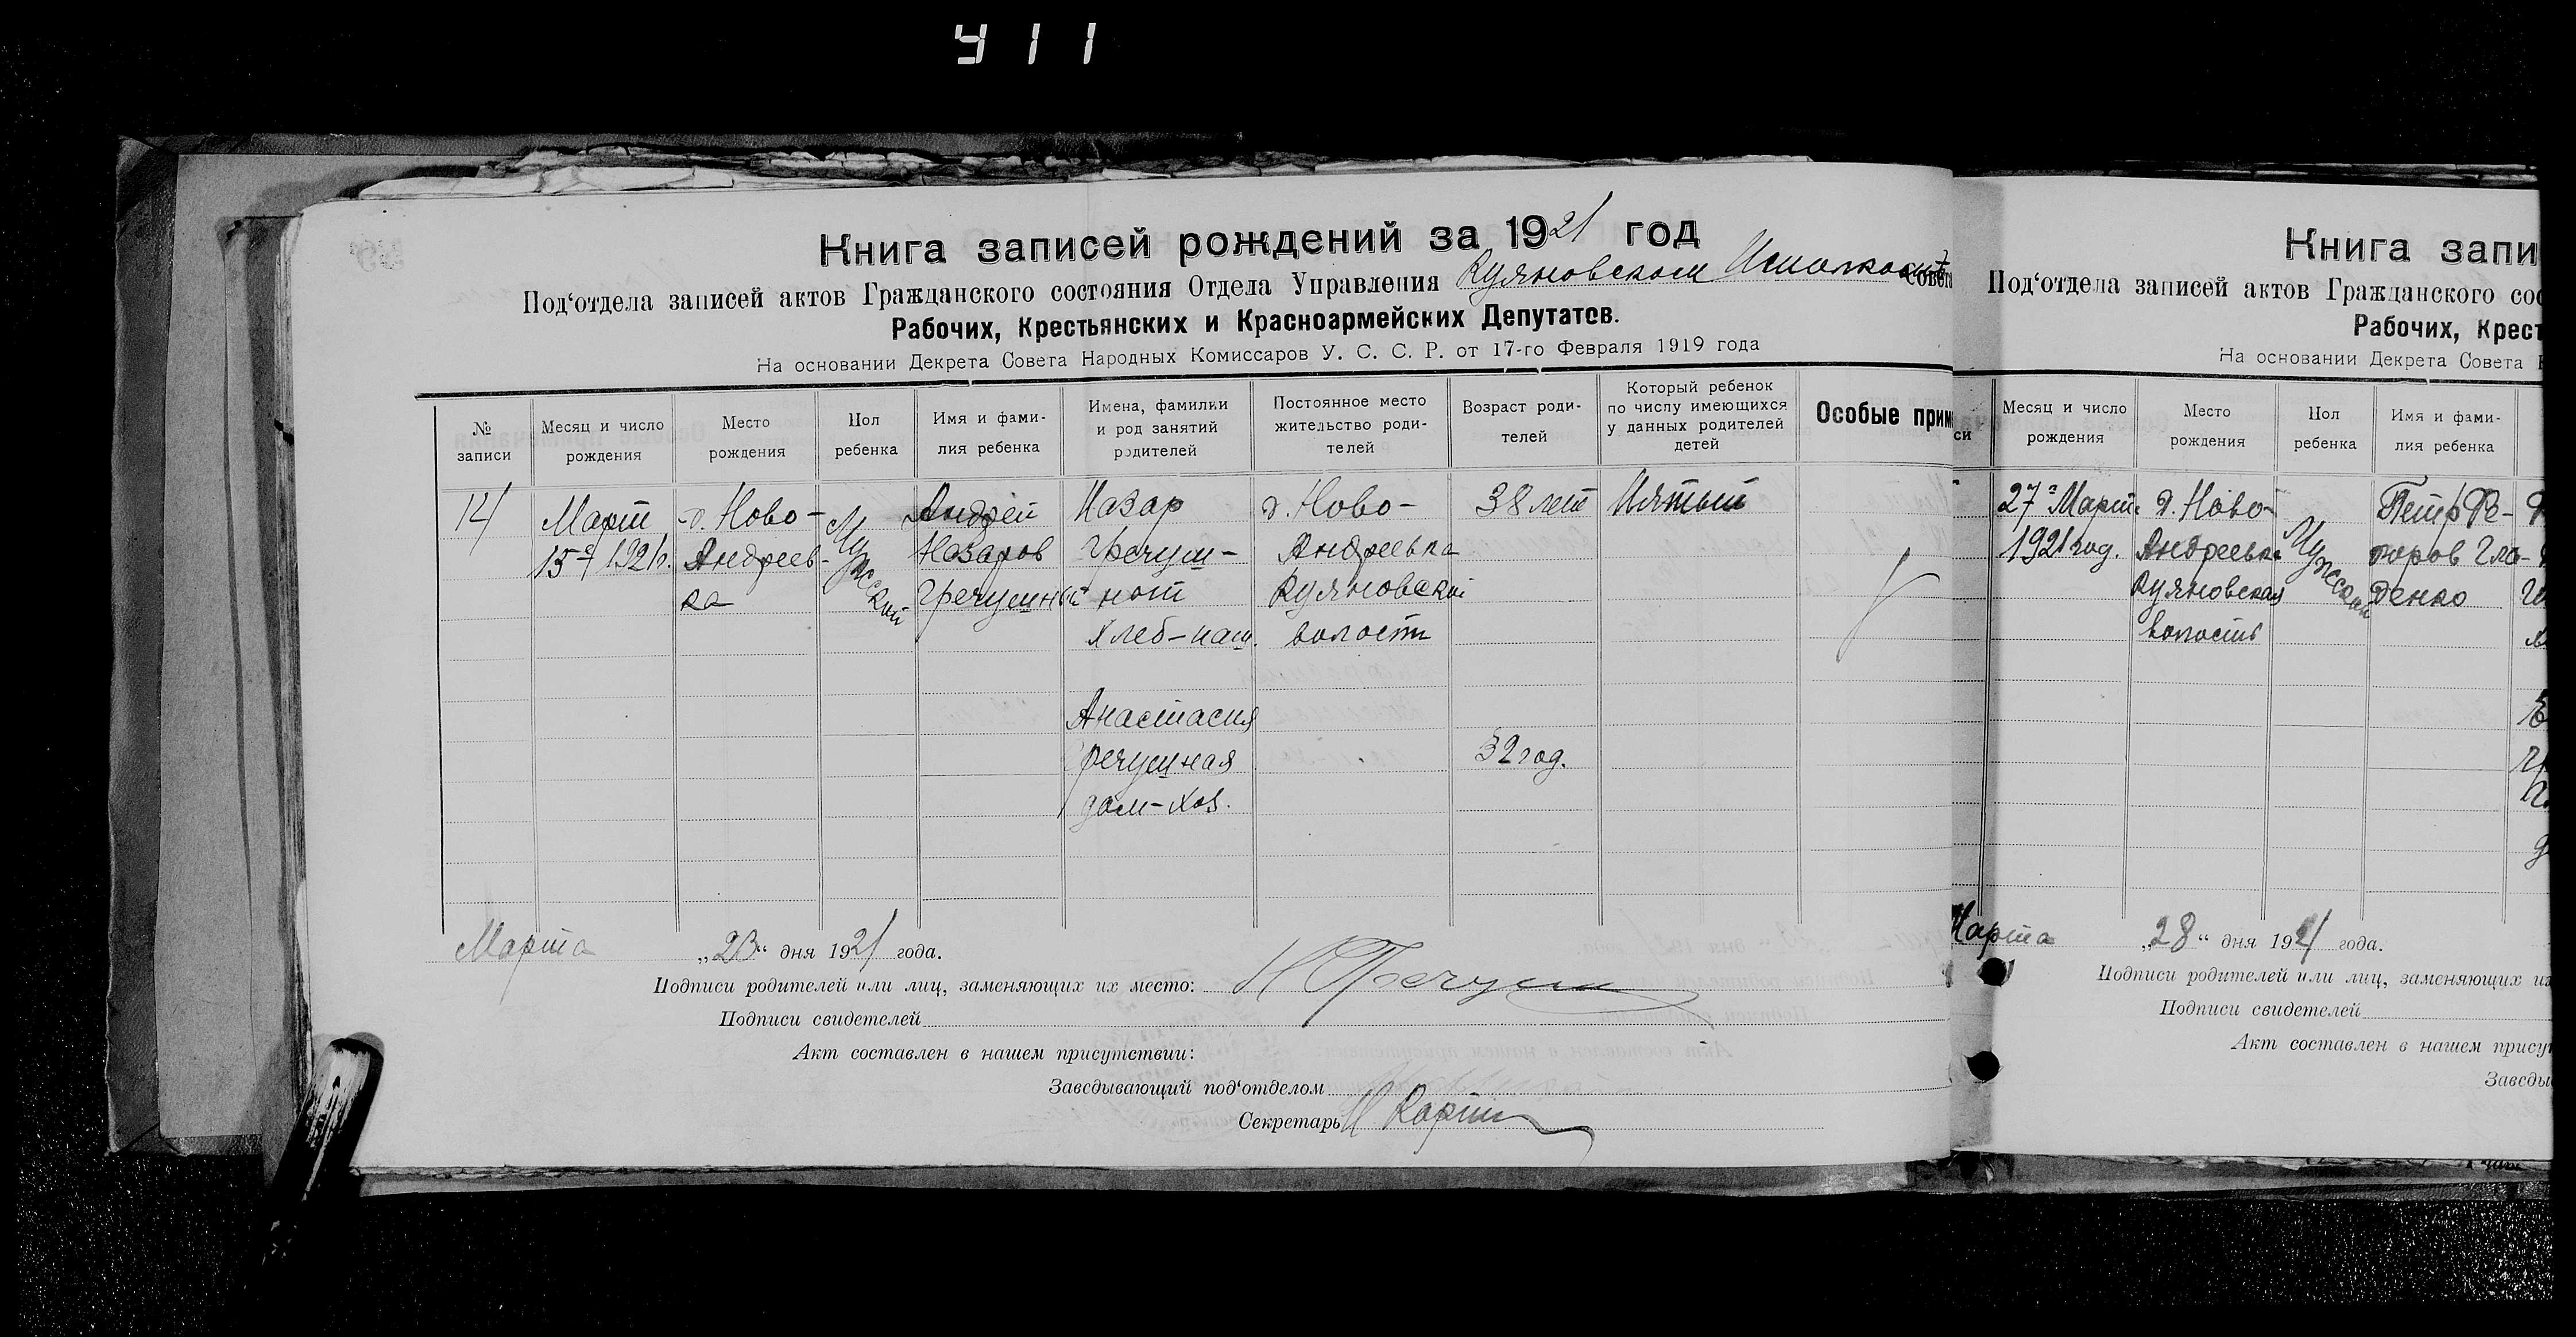 411
Книга записей рождений за 1921 год
Под‘отдела записей актов Гражданского состояния Отдела Управления Куяновском Исполком Совета
Рабочих, Крестьянских и Красноармейских Депутатов.
На основании Декрета Совета Народных Комиссаров У. С. С. Р. от 17-го Февраля 1919 года
№ записи
Месяц и число рождения
Место рождения
Пол ребенка
Имя и фамилия ребенка
Имена, фамилии и род занятий родителей
Постоянное место жительство родителей
Возраст родителей
Который ребенок по числу имеющихся у данных родителей детей
Особые прим
14
Март
15-го 1921г.
д. Ново-
Андреев-
ка
Мужский
Андрей
Назаров
Гречушный
Назар
Гречуш-
ной
хлеб-паш.
Анастасия
Гречушная
дом-хоз.
д. Ново-
Андреевка
Куяновской
волости
38 лет
32 год.
Пятый
Марта „23“ дня 1921 года.
Подписи родителей или лиц, заменяющих их место: Н Гречуш
Подписи свидетелей
Акт составлен в нашем присутствии:
Заведывающий под‘отделом
Секретарь
Книга запи
Под‘отдела записей актов Гражданского сос
Рабочих, Крест
На основании Декрета Совета Н
си
Месяц и число рождения
Место рождения
Пол ребенка
Имя и фамилия ребенка
27го Март.
1921 год.
д. Ново-
Андреевка
Куяновская
волость
Мужский
Петр Фе-
доров Гла-
денко
Марта „28“ дня 1921 года.
Подписи родителей или лиц, заменяющих их
Подписи свидетелей
Акт составлен в нашем присут
Заведы